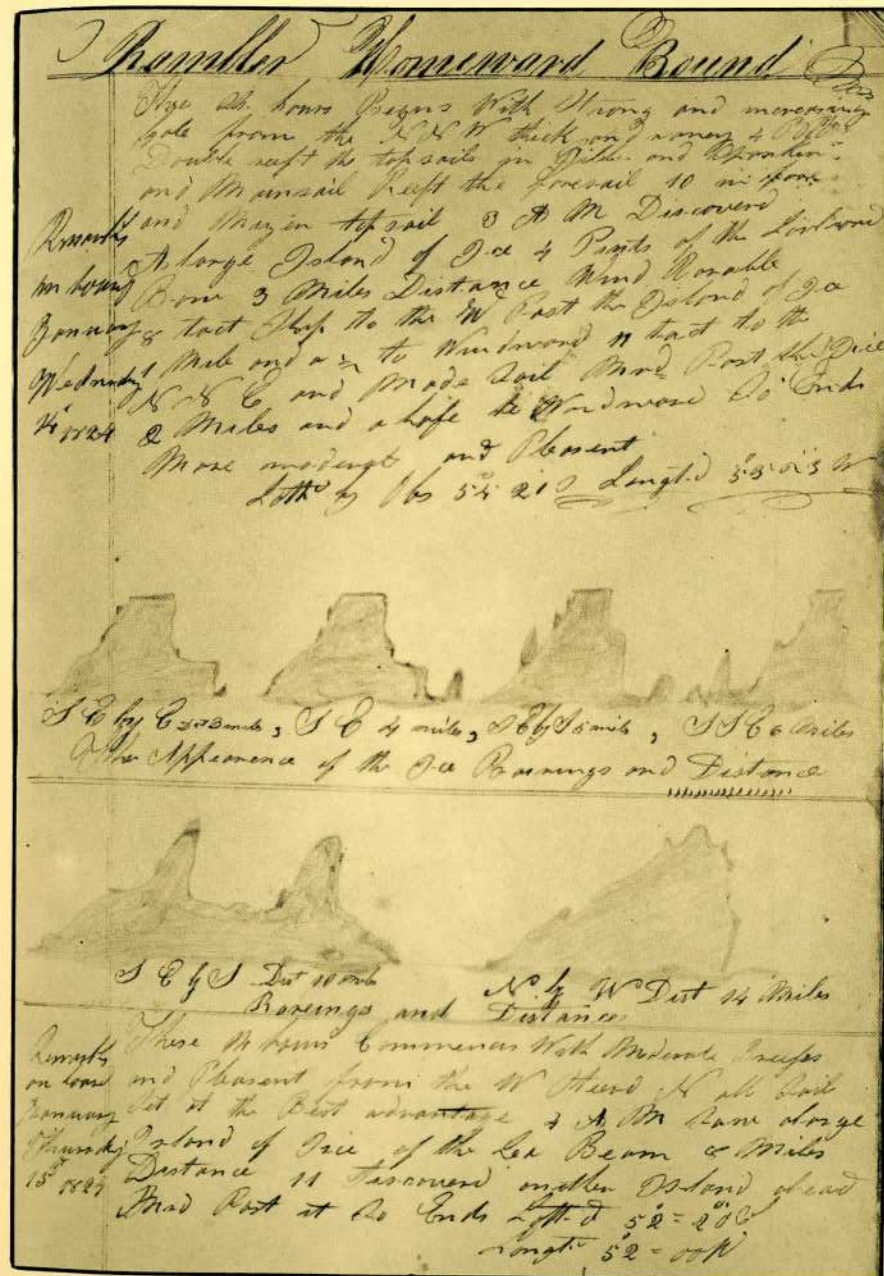 Rambler Homeward Bound
These 24 hours Begins With Strong and increasing
gale from the N N W thick and 4 P M
Double reeft the topsails in and Spanker
and Mainsail Reeft the foresail 10 in fore
and Mizen topsail 3 A M Discoverd
A large Island of Ice 4 Points of the Larboard
Bow 3 Miles Distance Wind Varable
8 tact Ship to the W Past the Island of Ice
1 Mile and a ½ to Windward 11 tact to the
N N E and Made Sail Mrd Past the Ice
2 Miles and a hafe to Windward So Ends
More moderat and Plesent
Lattd by Obs 54 21 S Longtd 53 03 W
Remarks
on board
January
Wednesday
14 1824
S E by E 3 miles, S E 4 miles, S E by S 5 mile, S S E 6 miles
The Appearence of the Ice Bearings and Distance
S E by S Dist 10 mils
N by W Dist 14 Miles
Bareings and Distance
Remarks
on board
January
Thursday
15 1824
These 24 hours Commences With Moderate Breeses
and Plesent from the W Steerd N all Sail
Set at the Best advantage 4 A M Saw a large
Island of Ice of the Lee Beam 8 Miles
Distance 11 Discoverd another Island ahead
Mrd Past it So Ends Lattd 52 =
Longtd 52 = 00 W